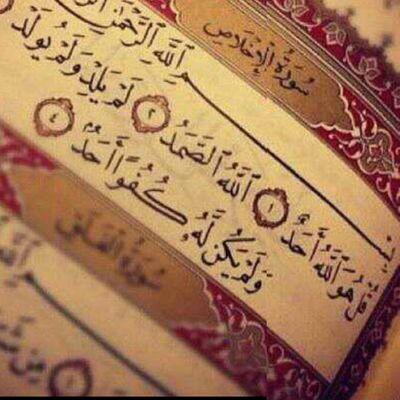 سُورَةُ الإِخْلَاصِ
اللَّهِ الرَّحْمَٰنِ
قُلْ هُوَ اللَّهُ أَحَدٌ ١ اللَّهُ الصَّمَدُ ٢ لَمْ يَلِدْ وَلَمْ يُولَدْ
وَلَمْ يَكُن لَّهُ كُفُوًا أَحَدٌ ٤
سُورَةُ الْفَلَقِ
اللَّهِ
مِن